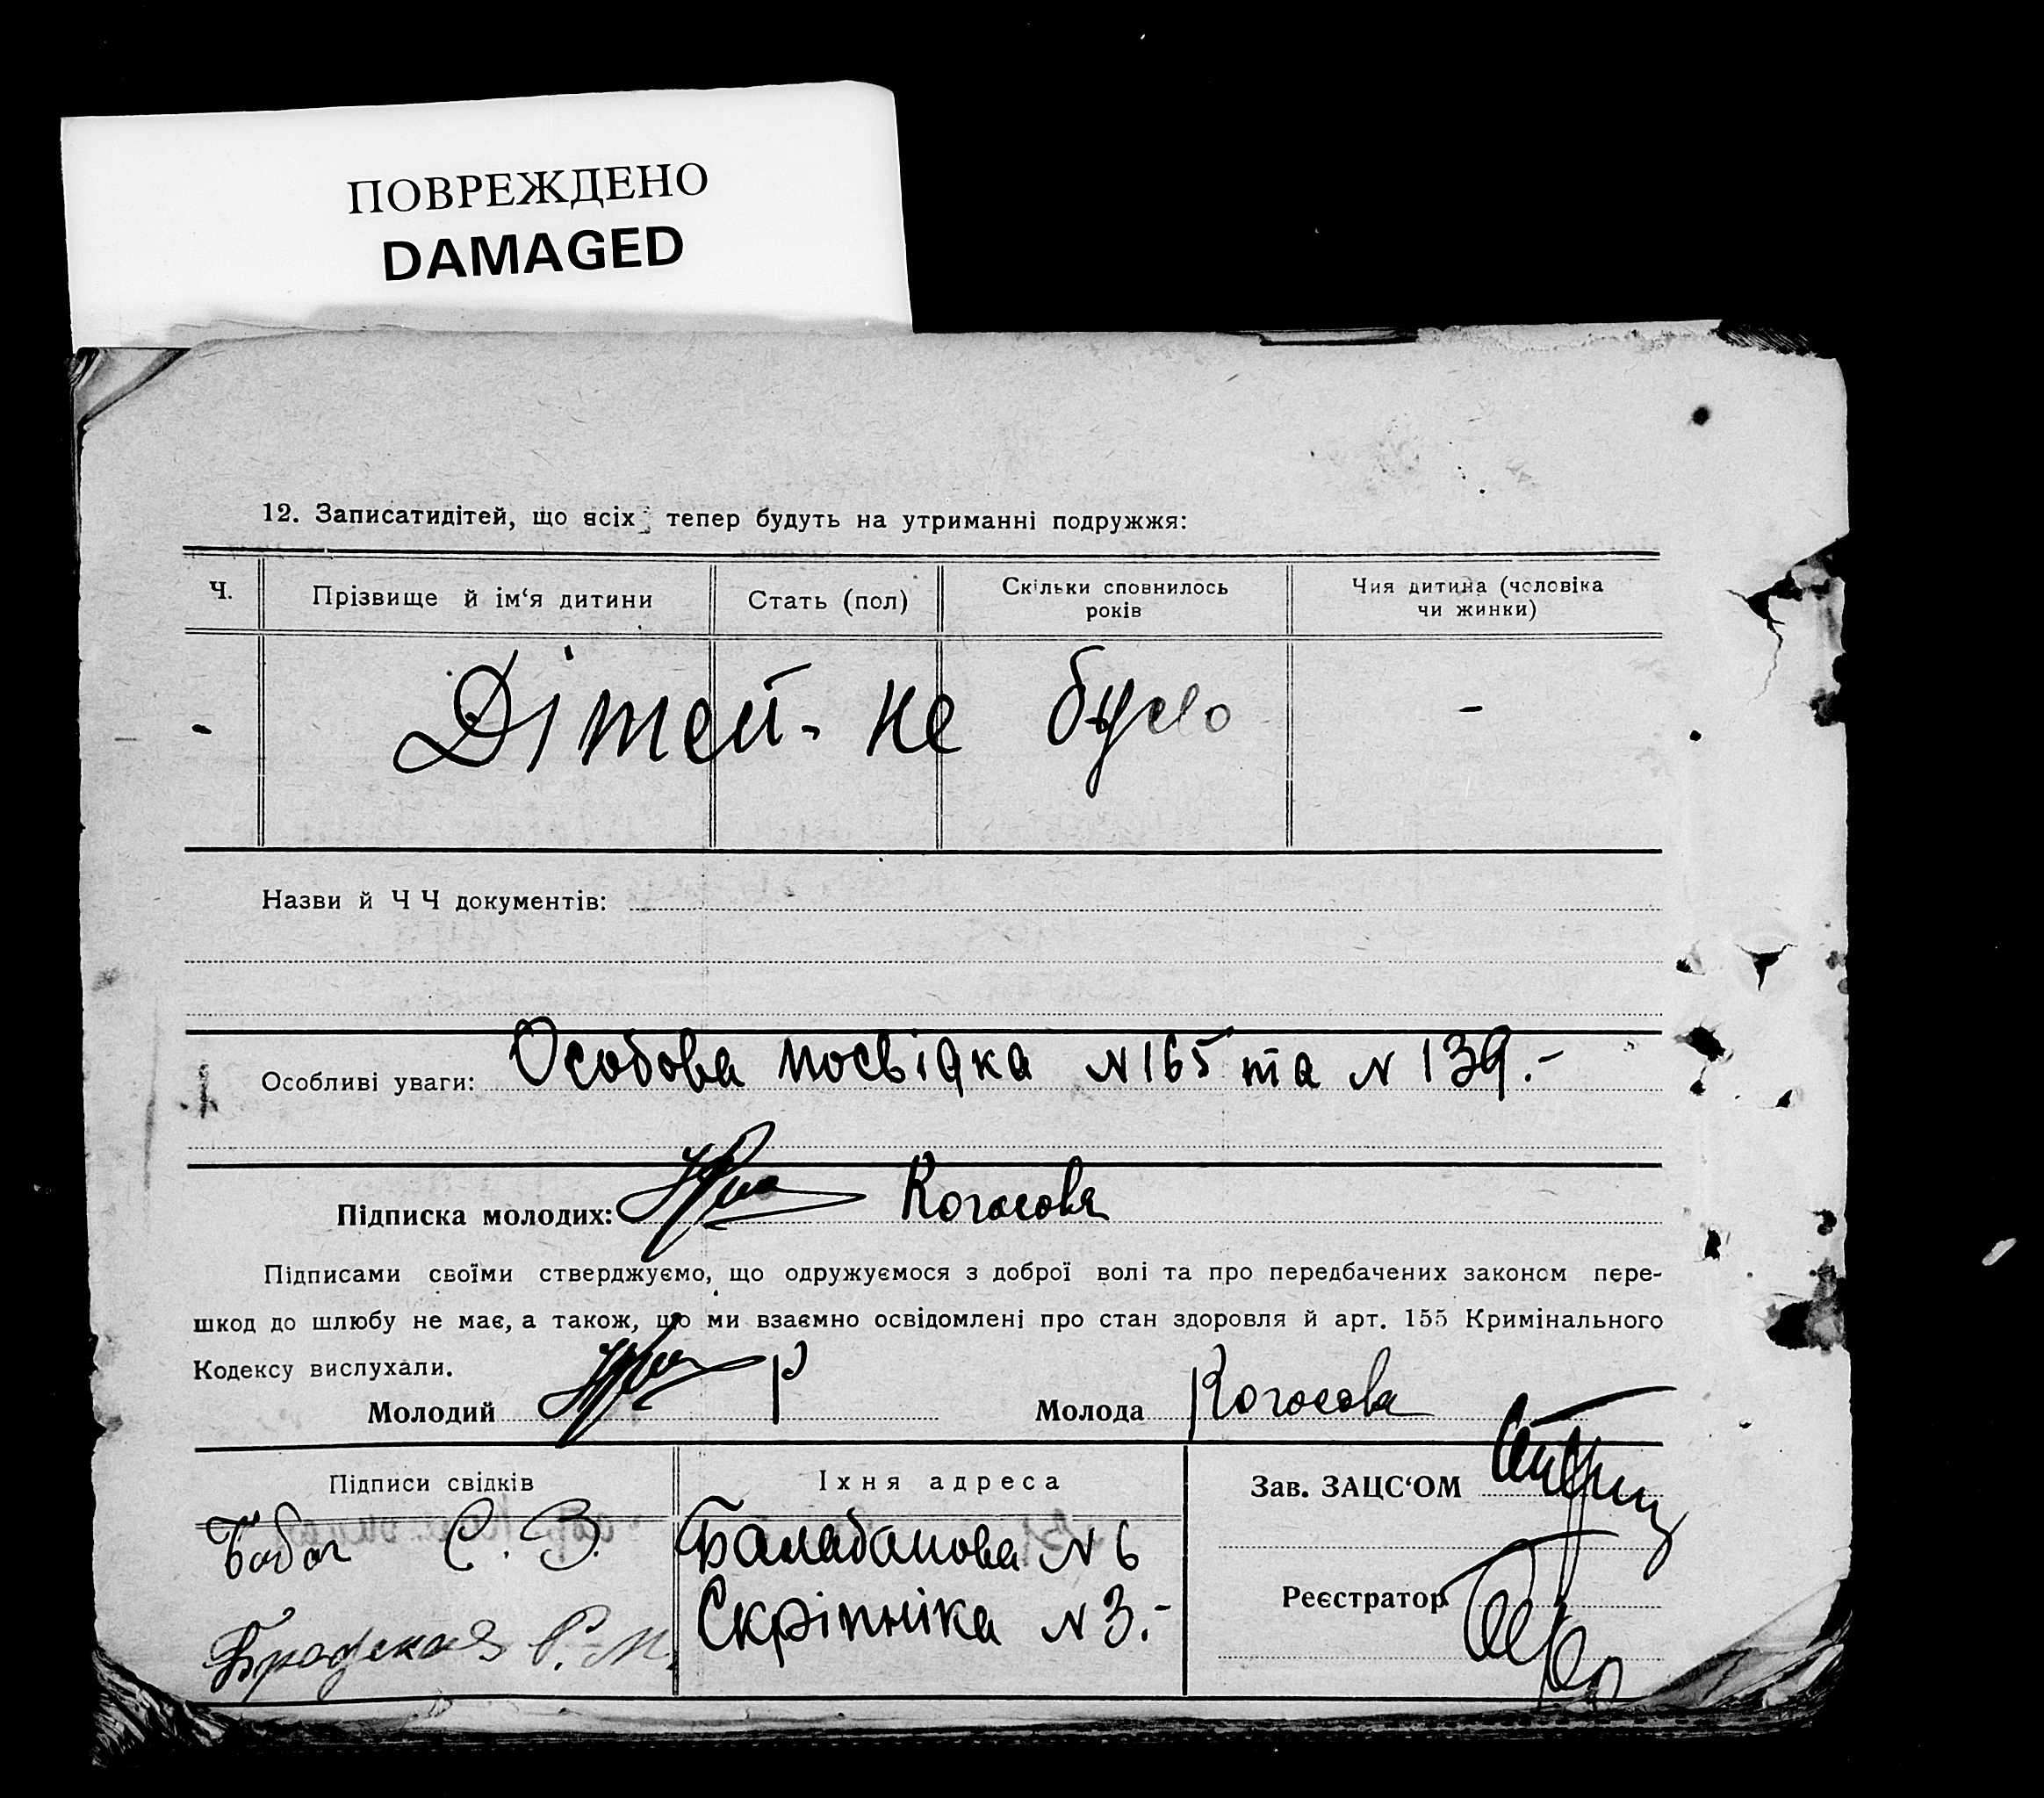 ПОВРЕЖДЕНО
DAMAGED
12. Записатидітей, що всіх тепер будуть на утриманні подружжя:
Ч.
Прізвище й ім‘я дитини
Стать (пол)
Скільки сповнилось
років
Чия дитина (человіка
чи жинки)
- Дітей - не було -
Назви й Ч Ч документів:
Особливі уваги: Особова посвідка N 165 та N 139.-
Підписка молодих: Когосова
Підписами своїми стверджуємо, що одружуємося з доброї волі та про передбачених законом пере-
шкод до шлюбу не має, а також, що ми взаємно освідомлені про стан здоровля й арт. 155 Кримінального
Кодексу вислухали.
Молодий
Молода Когосова
Підписи свідків
Їхня адреса
Зав. ЗАЦС‘ОМ
С. З. Балабанова N 6
Реєстратор
Бродская Р. М. Скріпніка N 3.-